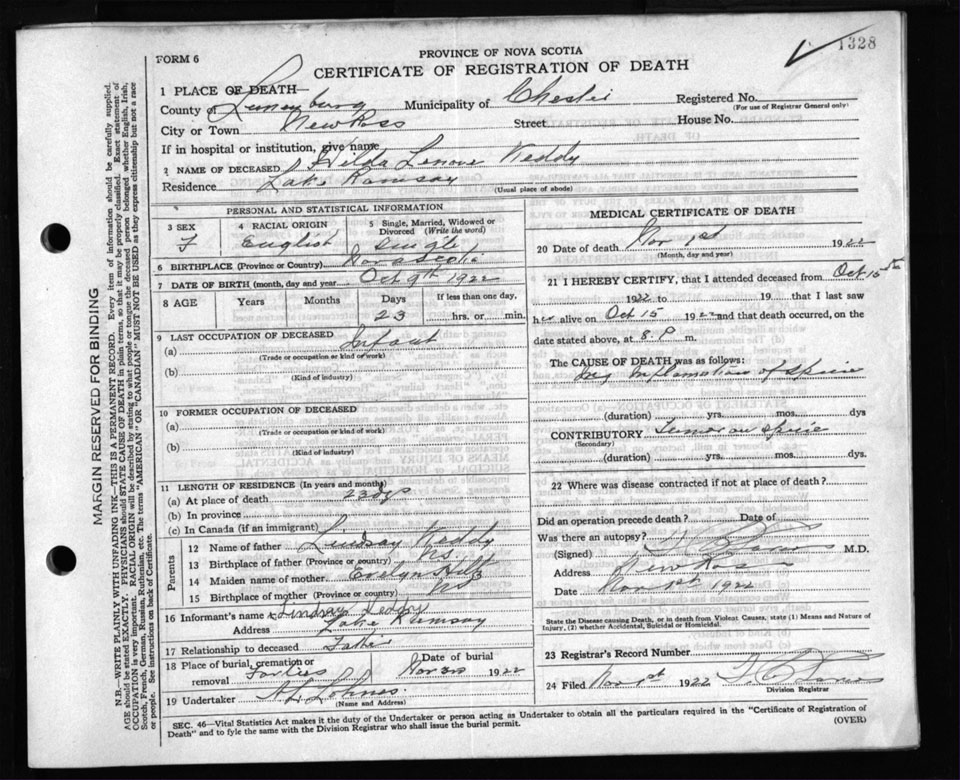 1328
FORM 6
PROVINCE OF NOVA SCOTIA
CERTIFICATE OF REGISTRATION OF DEATH
1 PLACE OF DEATH
County of Lunenburg Municipality of Chester Registered No.
(For use of Registrar General only)
City or Town New Ross Street House No.
If in hospital or institution, give name
2 NAME OF DECEASED Hilda Lenore Keddy
Residence Lake Ramsay
(Usual place of abode)
PERSONAL AND STATISTICAL INFORMATION
3 SEX
F
4 RACIAL ORIGIN
English
5 Single, Married, Widowed or Divorced (Write the word)
Single
6 BIRTHPLACE (Province or Country) Nova Scotia
7 DATE OF BIRTH (month, day and year) Oct 9th 1922
8 AGE Years Months Days If less than one day,
23 hrs. or min.
9 LAST OCCUPATION OF DECEASED
(a) Infant
(Trade or occupation or kind of work)
(b)
(Kind of industry)
10 FORMER OCCUPATION OF DECEASED
(a)
(Trade or occupation or kind of work)
(b)
(Kind of industry)
11 LENGTH OF RESIDENCE (In years and months)
(a) At place of death 23 dys
(b) In province
(c) In Canada (if an immigrant)
Parents
12 Name of father Lindsay Keddy
13 Birthplace of father (Province or country) N.S.
14 Maiden name of mother Evelyn
15 Birthplace of mother (Province or country) N.S.
16 Informant's name Lindsay Keddy
Address Lake Ramsay
17 Relationship to deceased Father
18 Place of burial, cremation or removal Forties Date of burial Nov 3rd 1922
19 Undertaker
(Name and Address)
MEDICAL CERTIFICATE OF DEATH
20 Date of death Nov 1st 1922
(Month, day and year)
21 I HEREBY CERTIFY, that I attended deceased from Oct 15th
1922 to 19 that I last saw
her alive on Oct 15 1922 and that death occurred, on the
date stated above, at 8. P m.
The CAUSE OF DEATH was as follows:
Inflamation of Spine
(duration) yrs. mos. dys
CONTRIBUTORY Tumor on Spine
(Secondary)
(duration) yrs. mos. dys.
22 Where was disease contracted if not at place of death?
Did an operation precede death? Date of
Was there an autopsy?
(Signed) M.D.
Address New Ross
Date Nov 1st 1922
State the Disease causing Death, or in death from Violent Causes, state (1) Means and Nature of Injury, (2) whether Accidental, Suicidal or Homicidal.
23 Registrar's Record Number
24 Filed Nov 1st 1922
Division Registrar
SEC. 46—Vital Statistics Act makes it the duty of the Undertaker or person acting as Undertaker to obtain all the particulars required in the "Certificate of Registration of
Death" and to fyle the same with the Division Registrar who shall issue the burial permit.
(OVER)
MARGIN RESERVED FOR BINDING
N.B.—WRITE PLAINLY WITH UNFADING INK—THIS IS A PERMANENT RECORD. Every item of information should be carefully supplied.
AGE should be stated EXACTLY. PHYSICIANS should STATE CAUSE OF DEATH in plain terms, so that it may be properly classified. Exact statement of
OCCUPATION is very important. RACIAL ORIGIN will be described by stating to what people or tongue the deceased person belonged whether English, Irish,
Scotch, French, German, Russian, Ruthenian, etc. The terms "AMERICAN" OR "CANADIAN" MUST NOT BE USED as they express citizenship but not a race
or people. See instructions on back of Certificate.